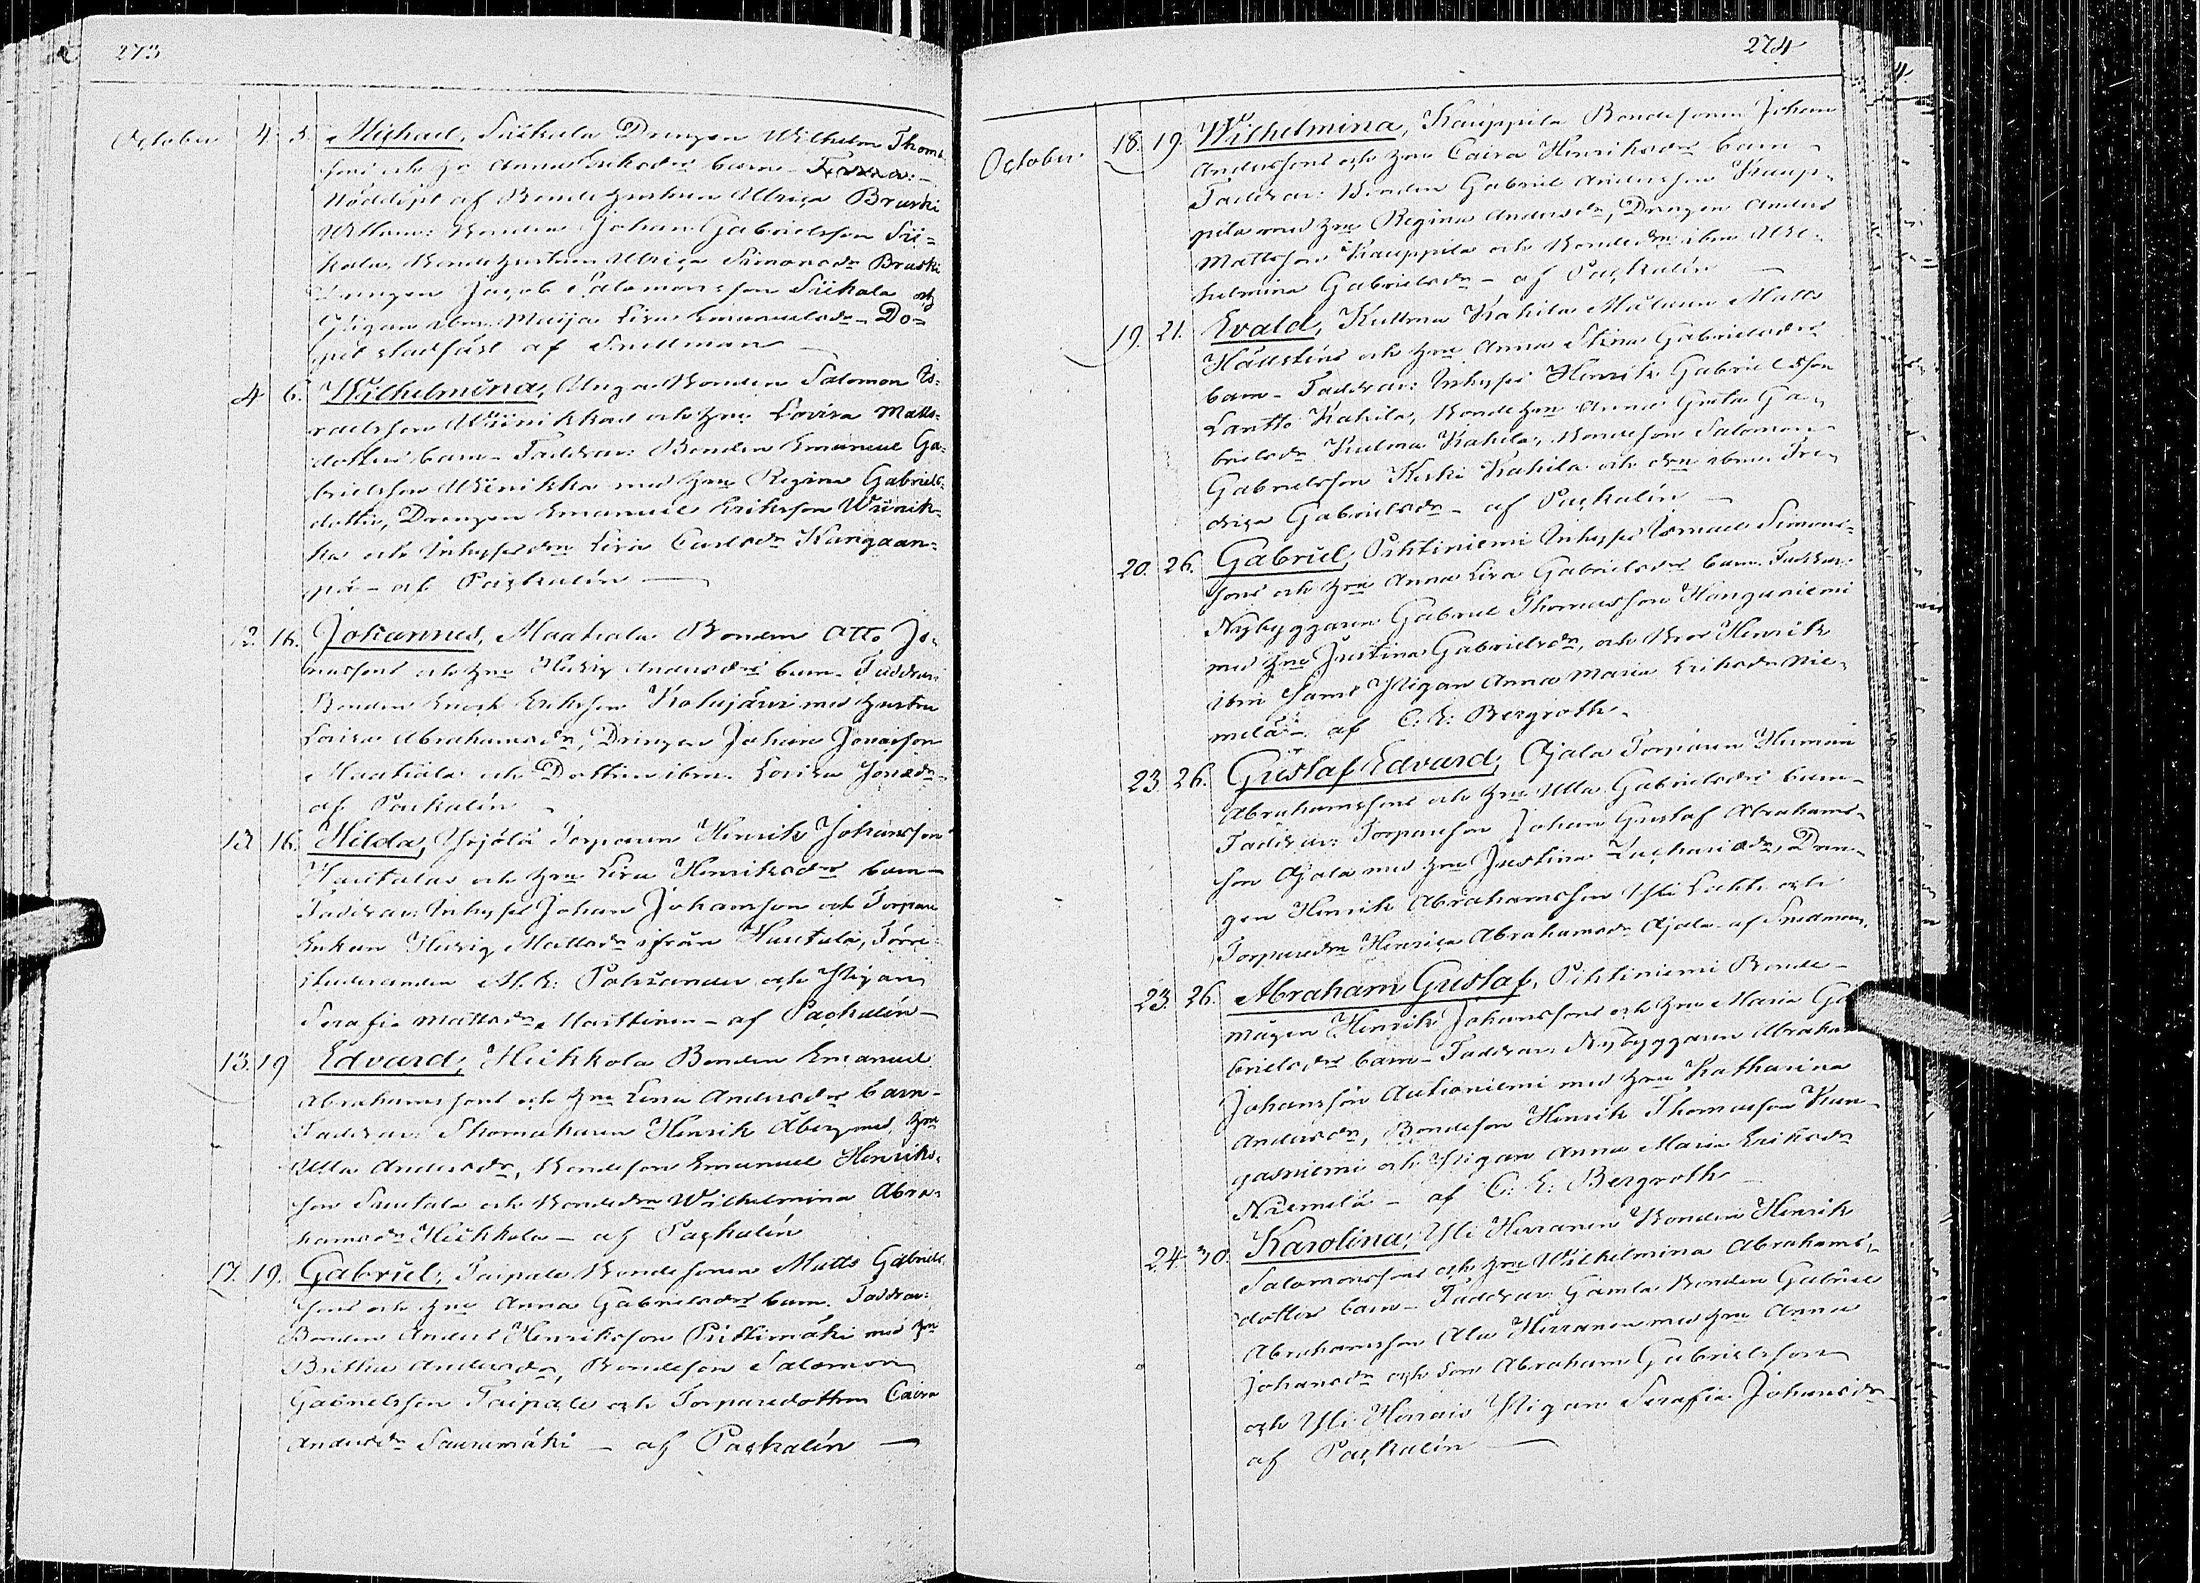 273
October 4. 5. Michael, Siikala Drengen Wilhelm Thoms
sons och h. Anna Ericksdrs barn
Nöddöpt af Bondehustrun Ulrica Bruski
Wittnen: Bonden Johan Gabrielsson Sii=
kala, Bondehustrun Ulrica Simonsdr Bruski
Drengen Jacob Salomonsson Siikala och
Pigan ibm. Maija Lisa Emanuelsdr – Do=
pet stadfäst af Snellman
4 6. Wilhelmina, Unga Bonden Salomon Is=
raelsson Wiinikkas och hru Lovisa Matts=
dotters barn – Faddrar: Bonden Emanuel Ga=
brielsson Wiinikka med hru Regina Gabriels=
dotter, Drengen Emanuel Eriksson Wiinik=
ka och Inhysesdrn Lisa Carlsdr Kangaan=
pä – af Paçhalén
12. 16. Johannes, Maahiala Bonden Otto Jo=
nassons och hru Hedvig Andersdrs barn. Faddrar:
Bonden Enock Eriksson Kohijärvi med hustru
Lovisa Abrahamsdr, Drengen Johan Jonasson
Maahiala och Dottren ibm. Lovisa Jonsdr –
af Paçhalén
13. 16. Hilda, Yrjölä Torparen Henrik Johansson
Huitalas och hru Lisa Henriksdrs barn –
Faddrar: Inhyses Johan Johansson och Torpare
Enkan Hedvig Mattsdr ifrån Huitula,
Studeranden M. E. och Pigan
Serafia Mattsdr Marttinen – af Paçhalén –
13. 19 Edvard, Heikkola Bonden Emanuel
Abrahamssons och hru Lena Andersdrs barn –
Faddrar: Skomakaren Henrik Åberg med hru
Ulla Andersdr, Bondeson Emanuel Henriks=
son Sautala och Bondedrn Wilhelmina Abra=
hamsdr Heikkola – af Paçhalén
17. 19. Gabriel, Taipale Bondesonen Matts Gabriels
sons och hru Anna Gabrielsdrs barn. Faddrar:
Bonden Anders Henriksson Pisttimäki med hru
Brittha Andersdr, Bondeson Salomon
Gabrielsson Taipale och Torparedottren Caisa
Andersdr Saunamäki – af Paçhalén –
274
October 18. 19. Wilhelmina, Kauppila Bondesonen Johan
Anderssons och hru Caisa Henriksdrs barn –
Faddrar: Bonden Gabriel Andersson Kaup=
pila med hru Regina Andersdr, Drengen Anders
Mattsson Kauppila och Bondedrn ibm Wil=
helmina Gabrielsdr – af Paçhalén
19. 21. Evald, Kullma Kahila Målaren Matts
Hällsténs och hru Anna Stina Gabrielsdrs
barn – Faddrar: Inhyses Henrik Gabrielsson
Lantto Kahila, Bondehrn Anna Greta Ga=
brielsdr Kulma Kahila, Bondeson Salomon
Gabrielsson Keski Kahila och drn ibm. Fre=
drica Gabrielsdr – af Paçhalén
20. 26. Gabriel, Pihtiniemi Inhyses Samuel Simons=
sons och hru Anna Lisa Gabrielsdrs barn. Faddrar:
Nybyggaren Gabriel Thomasson Kangasniemi
med hru Justina Gabrielsdr, och Bror Henrik
ibm samt Pigan Anna Maria Eriksdr Nie=
melä – af C. E. Bergroth.
23. 26. Gustaf Edvard, Ojala Torparen Herman
Abrahamssons och hru Ulla Gabrielsdrs barn –
Faddrar: Torparesson Johan Gustaf Abrahams=
son Ojala med hru Justina Zachariædr, Dren=
gen Henrik Abrahamsson Yli Lahti och
Torparedrn Henrica Abrahamsdr Ojala – af Snellman.
23. 26. Abraham Gustaf, Pihtiniemi Bonde=
mågen Henrik Johanssons och hru Maria Ga
brielsdrs barn – Faddrar: Nybyggaren Abraham
Johansson Autioniemi med hru Katharina
Andersdr, Bondeson Henrik Thomasson Kan=
gasniemi och Pigan Anna Maria Eriksdr
Niemelä – af C. E. Bergroth –
24. 30. Karolina, Yli Herranen Bonden Henrik
Salomonssons och hru Wilhelmina Abrahams=
dotters barn – Faddrar: Gamla Bonden Gabriel
Abrahamsson Ala Herranen med hru Anna
Johansdr och Son Abraham Gabrielsson
och Yli Herrais Pigan Serafia Johansdr –
af Paçhalén